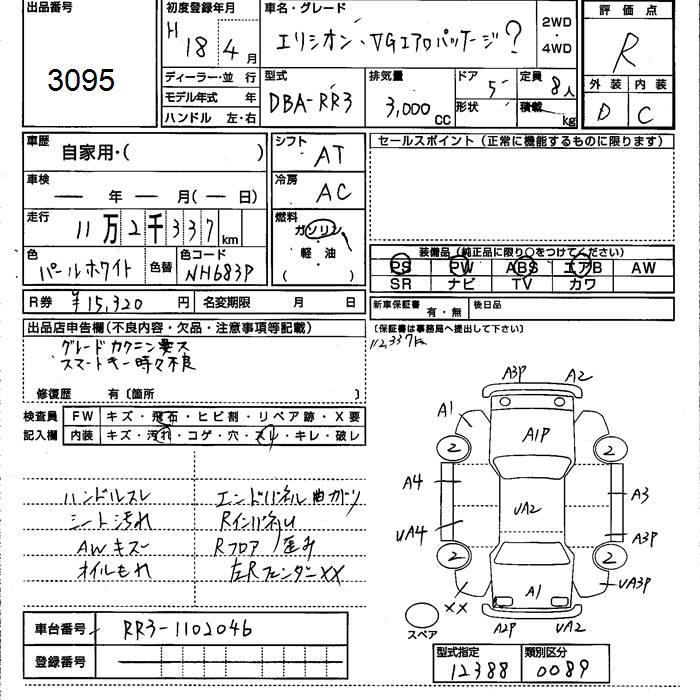 出品番号
3095
初度登録年月
H 18 年 4 月
車名・グレード
エリシオン、VGエアロパッケージ?
2WD
・
4WD
評価点
R
外装 内装
D C
ディーラー・並行
モデル年式 年
ハンドル 左・右
型式
DBA-RR3
排気量
3,000 CC
ドア
5
形状
定員
8人
積載 kg
車歴
自家用・( )
車検
― 年 ― 月(― 日)
走行
11万2千337km
シフト
AT
冷房
AC
燃料
ガソリン
・
軽油
( )
色
パールホワイト
色替
色コード
NH683P
R券 ¥15,320円 名変期限 月 日
セールスポイント(正常に機能するものに限ります)
装備品(純正品に限り○をつけてください)
PS PW ABS エアB AW
SR ナビ TV カワ
新車保証書 有・無 後日品
(保証書は事務局へ提出して下さい)
112,337km
出品店申告欄(不良内容・欠品・注意事項等記載)
グレードカクニン要ス
スマートキー時々不良
修復歴 有〔箇所 〕
検査員
記入欄
FW キズ・飛石・ヒビ割・リペア跡・X要
内装 キズ・汚れ・コゲ・穴・スレ・キレ・破レ
ハンドルスレ
シート汚れ
AWキズ
オイルもれ
エンドパネル曲がり
Rインパネル
Rフロア 歪み
左RフェンダーXX
A3P A2
A1 A1P
2 2
A4 A3
UA4 UA2 A3P
2 2
XX A1 UA3P
A2P UA2
スペア
車台番号 RR3-1102046
登録番号
型式指定 類別区分
12388 0089